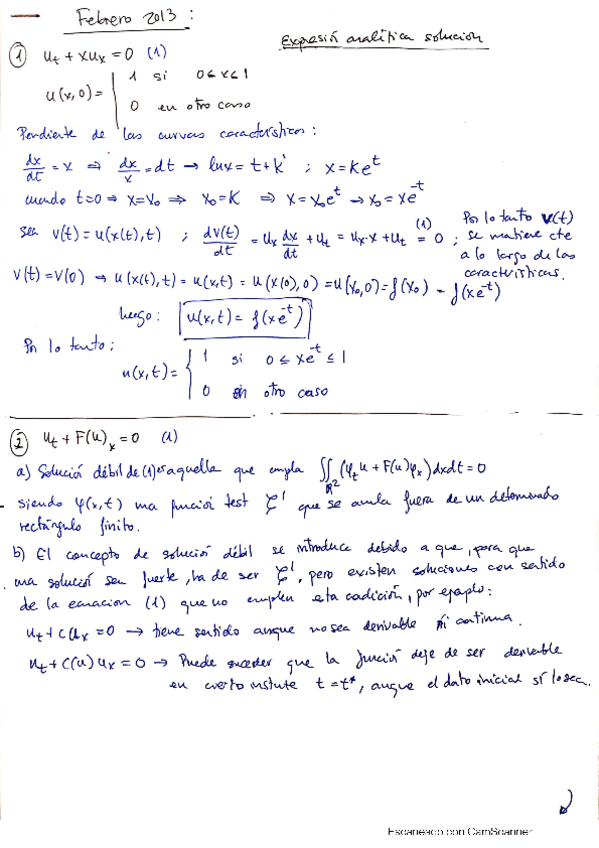 Febrero 2013 :
Expresión analítica solucion
① u_t + x u_x = 0 (1)
u(x,0) = { 1 si 0≤x≤1
0 en otro caso
Pendiente de las curvas características :
dx/dt = x ⇒ dx/x = dt → ln x = t + k' ; x = K e^t
cuando t=0 ⇒ x=x₀ ⇒ x₀ = K ⇒ x = x₀e^t → x₀ = xe^-t
sea v(t) = u(x(t),t) ; dv(t)/dt = u_x dx/dt + u_t = u_x·x + u_t (1)= 0 ; Por lo tanto v(t) se mantiene cte a lo largo de las características.
v(t) = v(0) → u(x(t),t) = u(x,t) = u(x(0),0) = u(x₀,0) = f(x₀) = f(xe^-t)
luego : u(x,t) = f(xe^-t)
Por lo tanto :
u(x,t) = { 1 si 0 ≤ xe^-t ≤ 1
0 en otro caso
② u_t + F(u)_x = 0 (1)
a) Solución débil de (1) es aquella que cumpla ∬_ℝ² (φ_t u + F(u)φ_x) dxdt = 0
siendo φ(x,t) una función test C¹ que se anula fuera de un determinado
rectángulo finito.
b) El concepto de solución débil se introduce debido a que, para que
una solución sea fuerte, ha de ser C¹, pero existen soluciones con sentido
de la ecuación (1) que no cumplen esta condición, por ejemplo :
u_t + c u_x = 0 → tiene sentido aunque no sea derivable ni continua.
u_t + c(u) u_x = 0 → Puede suceder que la función deje de ser derivable
en cierto instante t = t*, aunque el dato inicial sí lo sea.
Escaneado con CamScanner